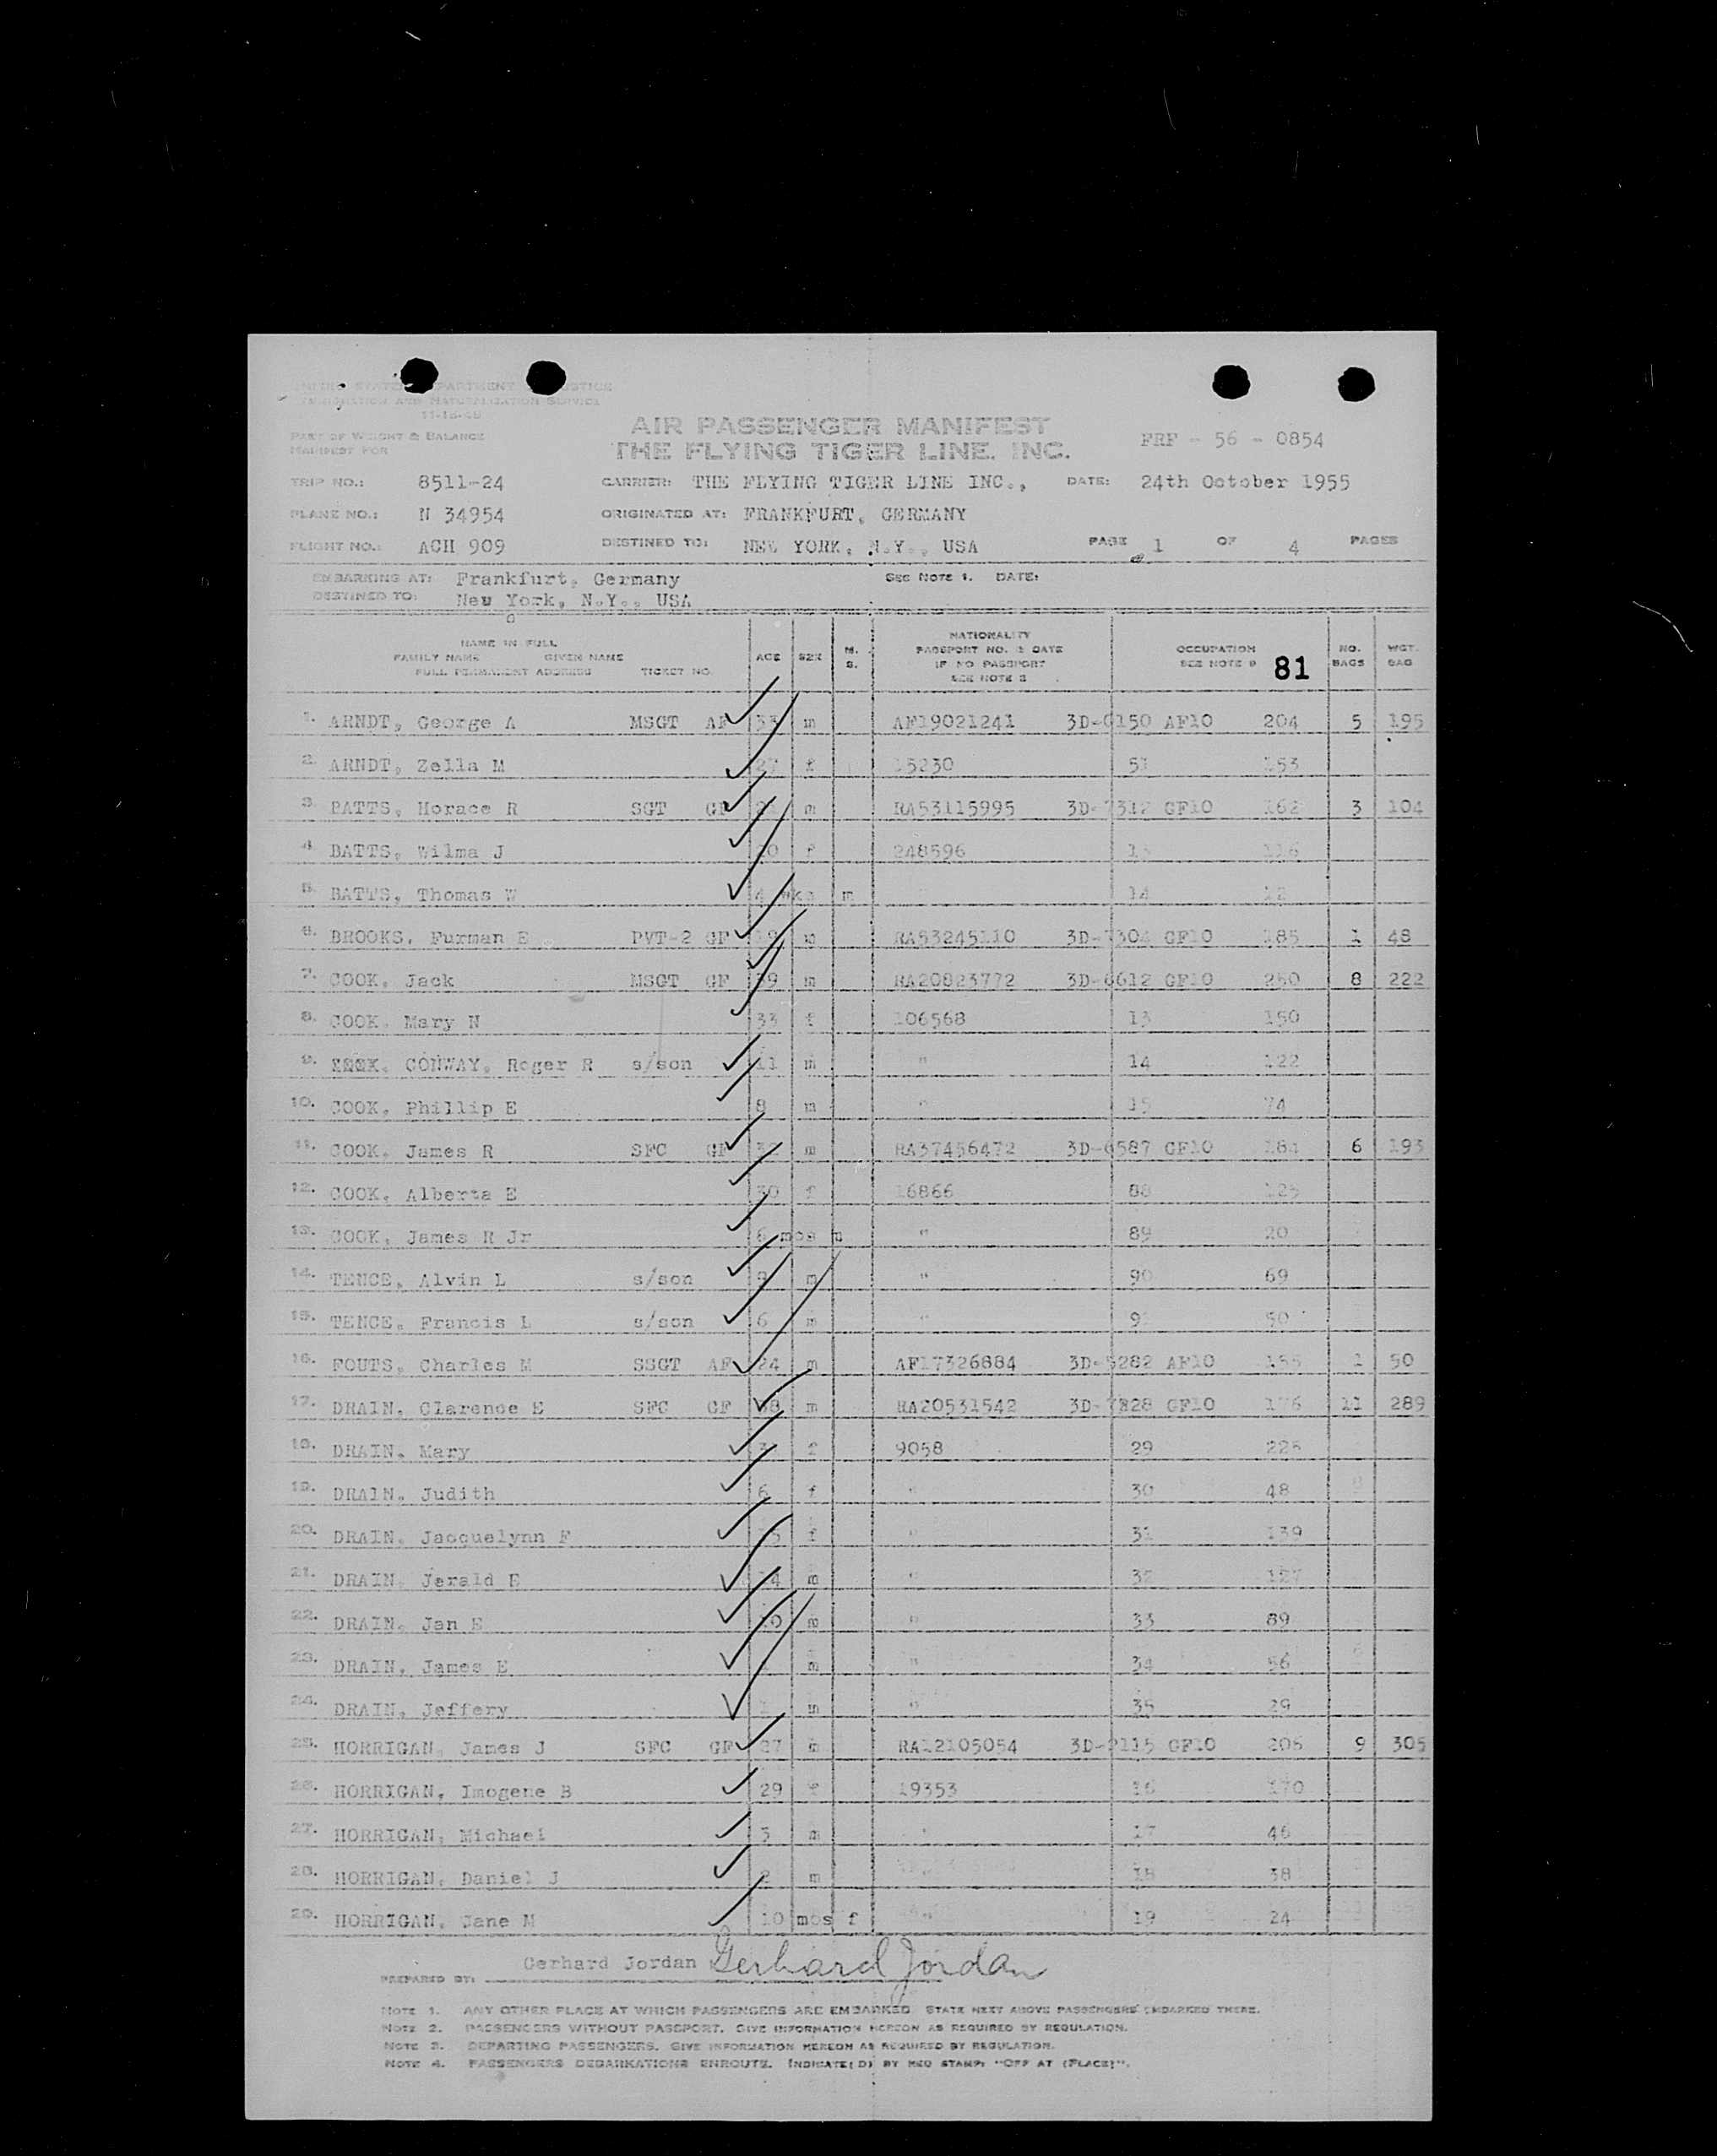 UNITED STATES DEPARTMENT OF JUSTICE
IMMIGRATION AND NATURALIZATION SERVICE
11-15-48
PART OF WEIGHT & BALANCE
MANIFEST FOR
AIR PASSENGER MANIFEST
THE FLYING TIGER LINE, INC.
FRF - 56 - 0854
TRIP NO.: 8511-24 CARRIER: THE FLYING TIGER LINE INC., DATE: 24th October 1955
PLANE NO.: N 34954 ORIGINATED AT: FRANKFURT, GERMANY
FLIGHT NO.: ACH 909 DESTINED TO: NEW YORK, N.Y., USA PAGE 1 OF 4 PAGES
EMBARKING AT: Frankfurt, Germany SEE NOTE 1. DATE:
DESTINED TO: New York, N.Y., USA
NAME IN FULL
FAMILY NAME GIVEN NAME
FULL PERMANENT ADDRESS TICKET NO.
AGE SEX M. S.
NATIONALITY
PASSPORT NO. & DATE
IF NO PASSPORT
SEE NOTE 2
OCCUPATION
SEE NOTE 3 81
NO. BAGS WGT. BAG
1. ARNDT, George A MSGT AF 33 m AF19021241 3D-0150 AF10 204 5 195
2. ARNDT, Zella M 27 f 15230 51 153
3. BATTS, Horace R SGT GF m RA53115995 3D-7312 GF10 162 3 104
4. BATTS, Wilma J 20 f 248596 13 116
5. BATTS, Thomas W 4 wks m " 14 12
6. BROOKS, Furman E PVT-2 GF 19 m RA53245110 3D-7304 GF10 185 1 48
7. COOK, Jack MSGT GF 39 m RA20823772 3D-6612 GF10 250 8 222
8. COOK, Mary N 33 f 106568 13 150
9. CONWAY, Roger R s/son 11 m " 14 122
10. COOK, Phillip E 8 m " 15 74
11. COOK, James R SFC GF 32 m RA37456472 3D-6587 GF10 184 6 193
12. COOK, Alberta E 30 f 16866 88 125
13. COOK, James R Jr 6 mos m " 89 20
14. TENCE, Alvin L s/son 9 m " 90 69
15. TENCE, Francis L s/son 6 m " 91 50
16. FOUTS, Charles M SSGT AF 24 m AF17326884 3D-5282 AF10 155 1 50
17. DRAIN, Clarence E SFC GF 38 m RA20531542 3D-7828 GF10 176 11 289
18. DRAIN, Mary f 9058 29 225
19. DRAIN, Judith 6 f " 30 48
20. DRAIN, Jacquelynn F 15 f " 31 139
21. DRAIN, Jerald E 14 m " 32 127
22. DRAIN, Jan E 10 m " 33 89
23. DRAIN, James E m " 34 56
24. DRAIN, Jeffery m " 35 29
25. HORRIGAN, James J SFC GF 27 m RA12105054 3D-2115 GF10 206 9 305
26. HORRIGAN, Imogene B 29 f 19353 16 170
27. HORRIGAN, Michael 3 m " 17 46
28. HORRIGAN, Daniel J 2 m 18 38
29. HORRIGAN, Jane M 10 mos f " 19 24
PREPARED BY: Gerhard Jordan Gerhard Jordan
NOTE 1. ANY OTHER PLACE AT WHICH PASSENGERS ARE EMBARKED. STATE NEXT ABOVE PASSENGERS' EMBARKED THERE.
NOTE 2. PASSENGERS WITHOUT PASSPORT. GIVE INFORMATION HEREON AS REQUIRED BY REGULATION.
NOTE 3. DEPARTING PASSENGERS. GIVE INFORMATION HEREON AS REQUIRED BY REGULATION.
NOTE 4. PASSENGERS DEBARKATIONS ENROUTE. INDICATE(D) BY RED STAMP: "OFF AT (PLACE)".